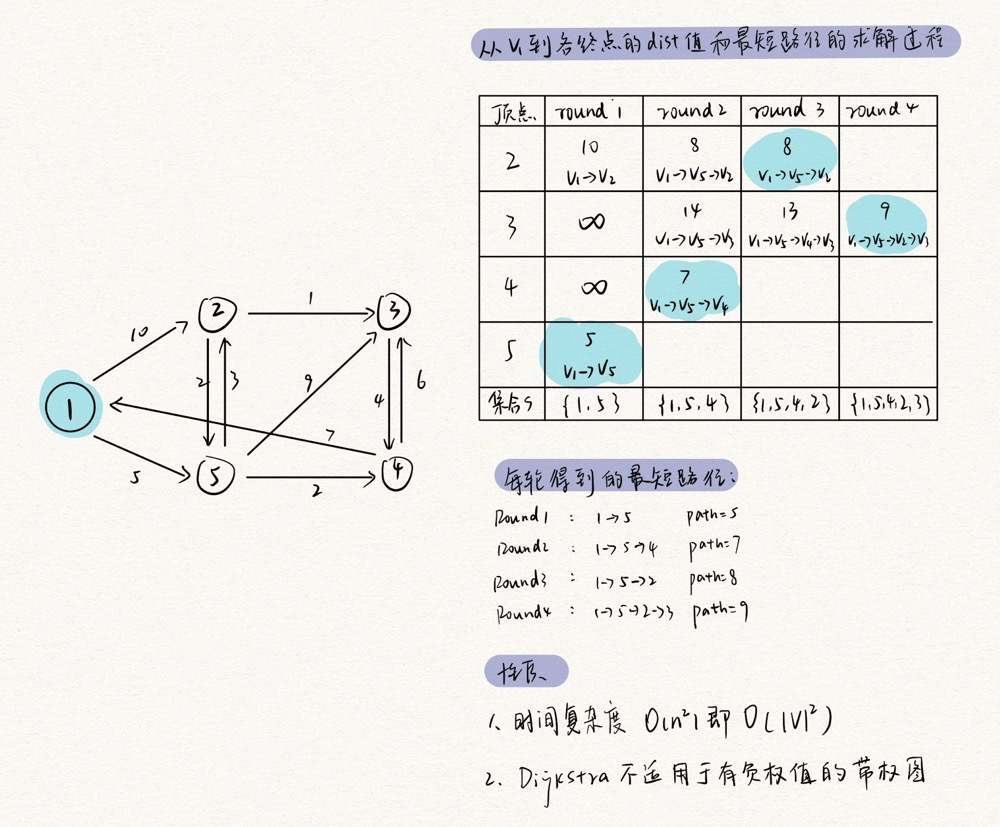 从V₁到各终点的dist值和最短路径的求解过程
顶点 round 1 round 2 round 3 round 4
2 10 8 8
V₁→V₂ V₁→V₅→V₂ V₁→V₅→V₂
3 ∞ 14 13 9
V₁→V₅→V₃ V₁→V₅→V₄→V₃ V₁→V₅→V₂→V₃
4 ∞ 7
V₁→V₅→V₄
5 5
V₁→V₅
集合S {1,5} {1,5,4} {1,5,4,2} {1,5,4,2,3}
2 1 3
10 2 3 9 4 6
1
7
5 5 2 4
每轮得到的最短路径:
Round1 : 1→5 path=5
Round2 : 1→5→4 path=7
Round3 : 1→5→2 path=8
Round4 : 1→5→2→3 path=9
性质、
1、时间复杂度 O(n²)即 O(|V|²)
2. Dijkstra 不适用于有负权值的带权图